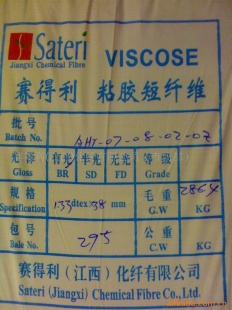 Sateri VISCOSE
Jiangxi Chemical Fibre
赛得利 粘胶短纤维
批号 Batch No. AHT-07-08-02-02
光泽 Gloss 有光 BR 半光 SD 无光 FD 等级 Grade
规格 Specification 1.33dtex×38mm 毛重 G.W 286.4 KG
包号 Bale No. 295 公重 C.W KG
赛得利（江西）化纤有限公司
Sateri (Jiangxi) Chemical Fibre Co., Ltd.